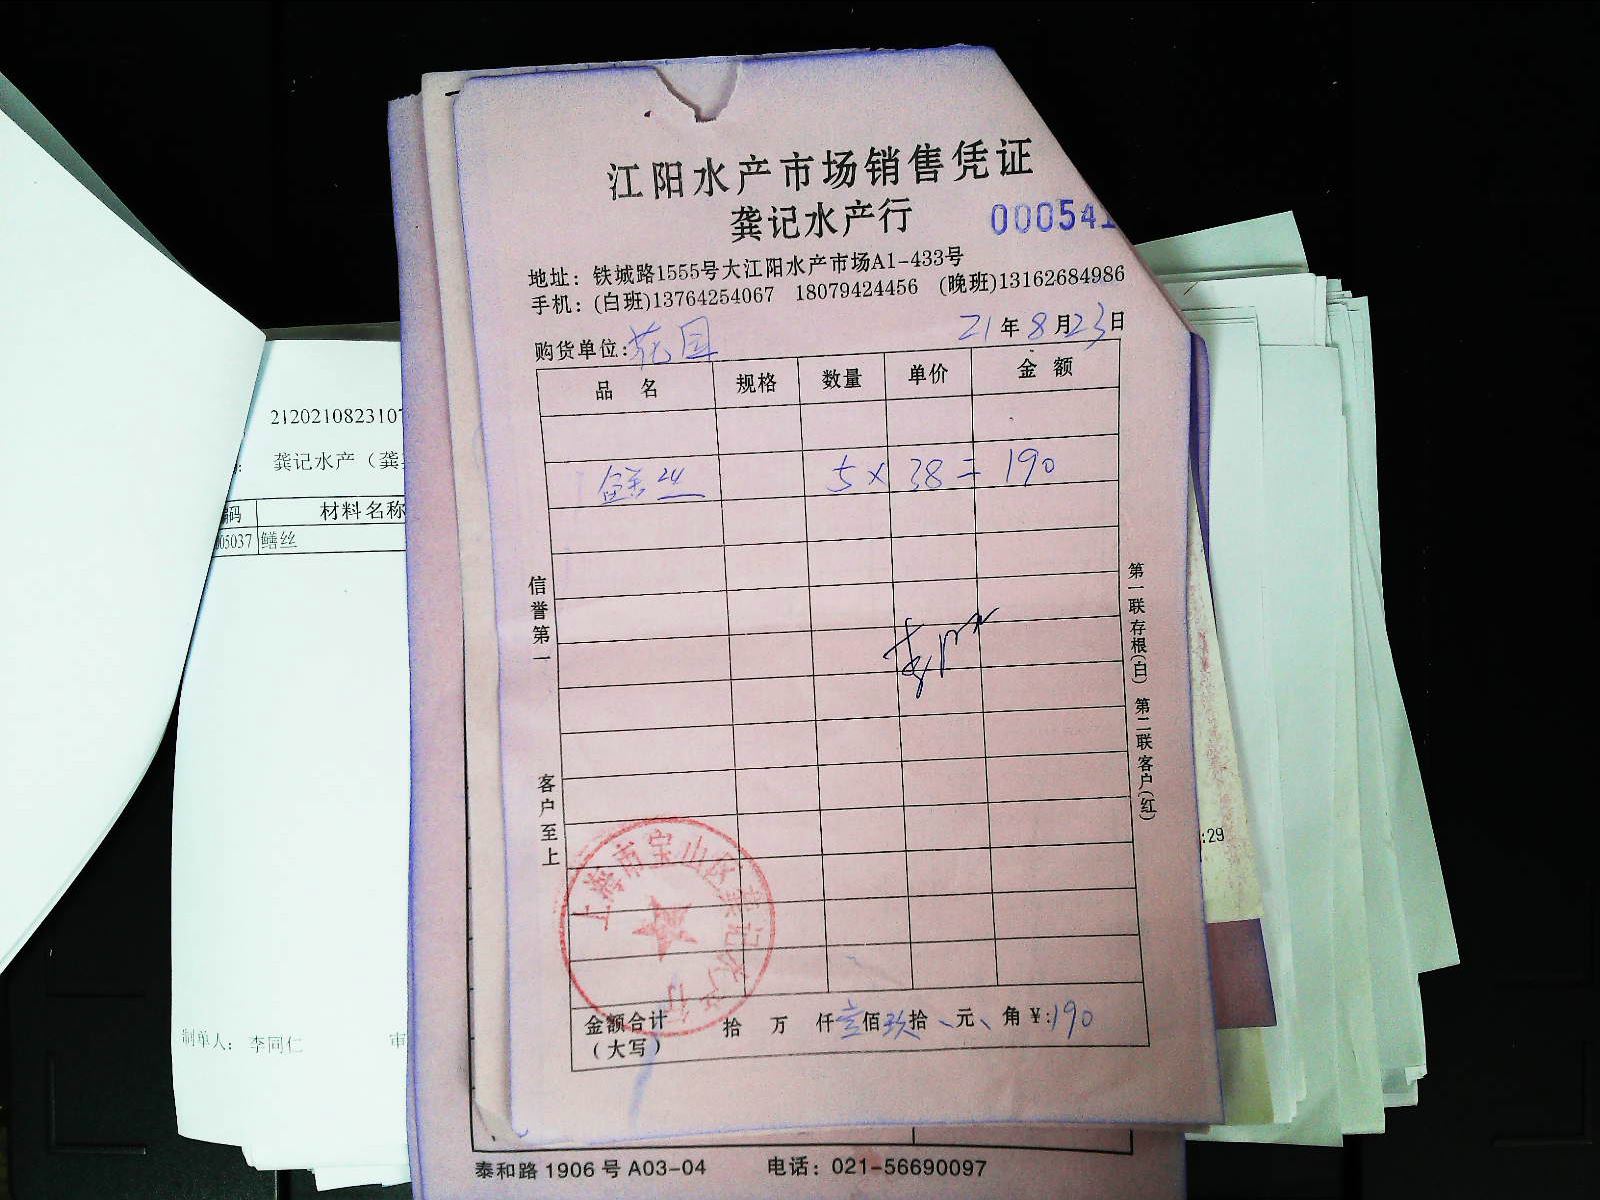 江阳水产市场销售凭证
龚记水产行
000541
地址：铁城路1555号大江阳水产市场A1-433号
手机：(白班)13764254067 18079424456 (晚班)13162684986
购货单位：
21年8月23日
品 名 规格 数量 单价 金 额
鳝丝 5×38=190
信誉第一
客户至上
第一联存根(白) 第二联客户(红)
上海市宝山区龚记水产行
金额合计(大写) 拾 万 仟壹佰玖拾、元、角¥:190
2120210823107
龚记水产（龚
编码 材料名称
05037 鳝丝
制单人： 李同仁 审
:29
泰和路1906号A03-04 电话：021-56690097